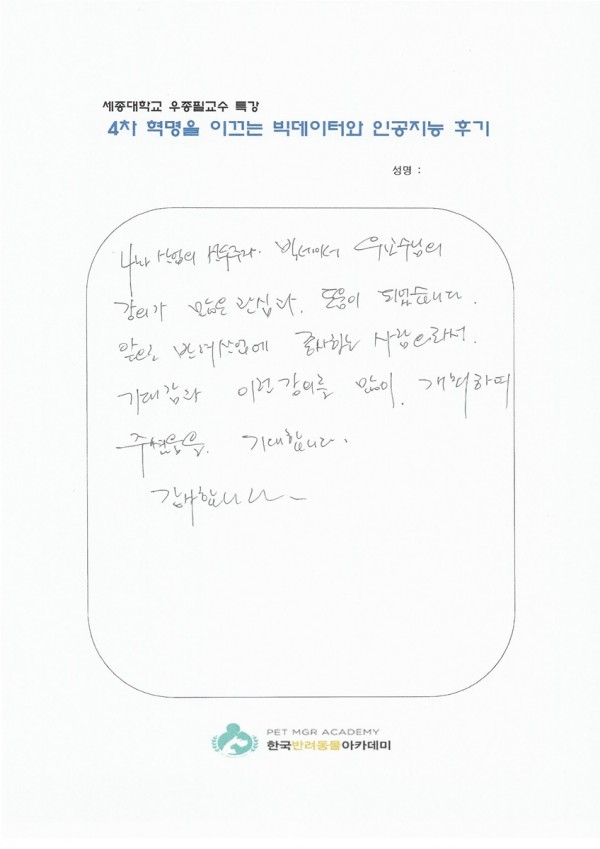 세종대학교 우종필교수 특강
4차 혁명을 이끄는 빅데이터와 인공지능 후기
성명 :
4차 산업의 선두주자. 빅데이터 우교수님의
강의가 많은 관심과. 도움이 되었습니다.
앞으로 반려산업에 종사하는 사람으로서.
기대감과 이런강의를 많이. 개최하여
주셨음을. 기대합니다.
감사합니다~
PET MGR ACADEMY
한국반려동물아카데미